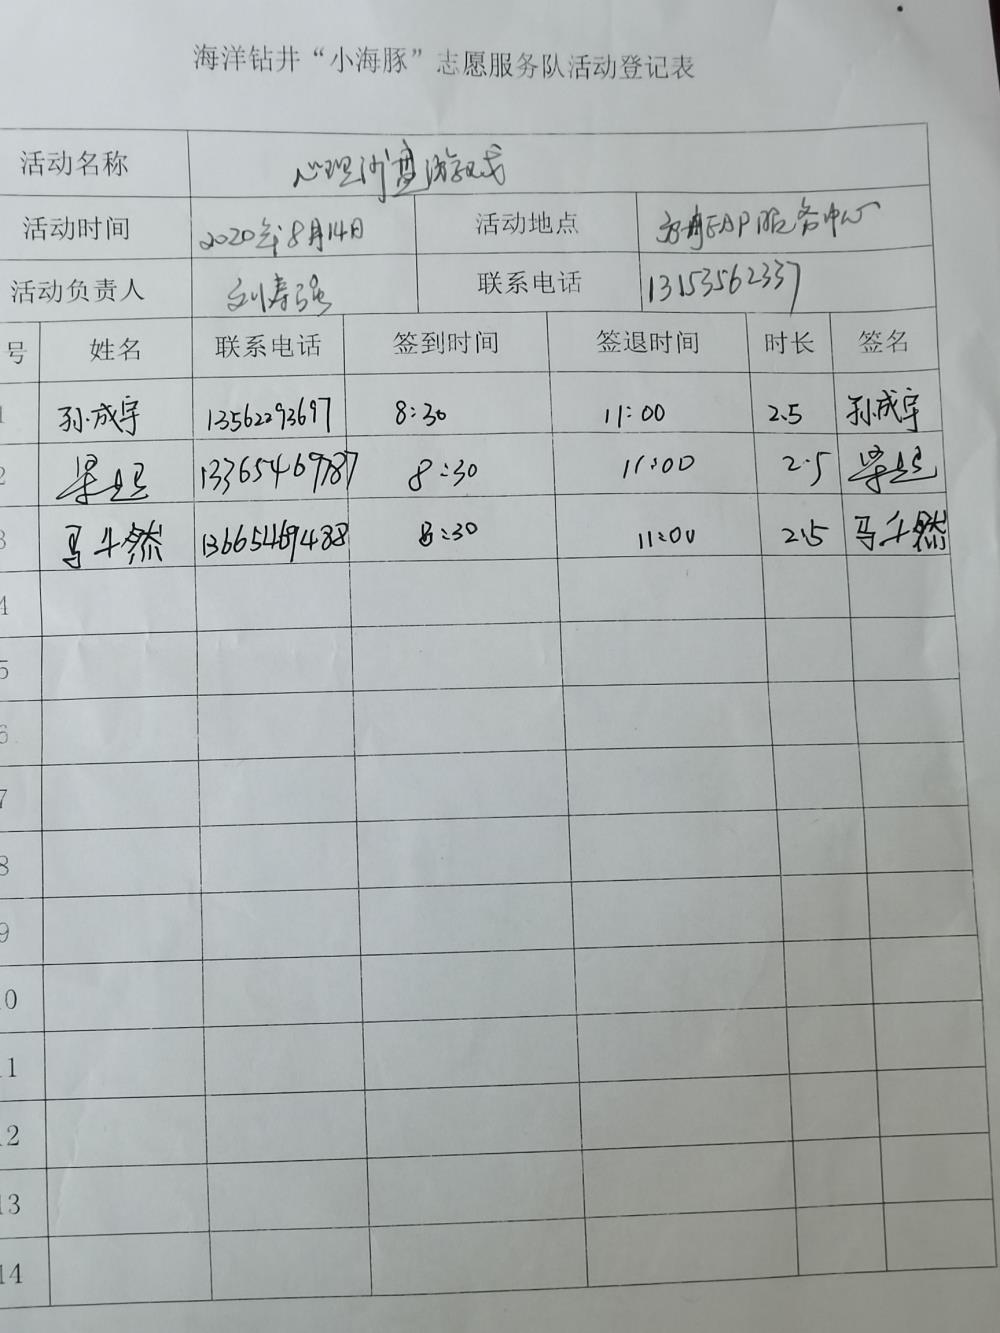 海洋钻井“小海豚”志愿服务队活动登记表
活动名称 心理沙盘游戏
活动时间 2020年8月14日 活动地点 方舟EAP服务中心
活动负责人 刘寿强 联系电话 13153562337
号 姓名 联系电话 签到时间 签退时间 时长 签名
1 孙成宇 13562293697 8:30 11:00 2.5 孙成宇
2 梁 13365469787 8:30 11:00 2.5 梁
3 马斗然 13665469488 8:30 11:00 2.5 马斗然
4
5
6
7
8
9
10
11
12
13
14